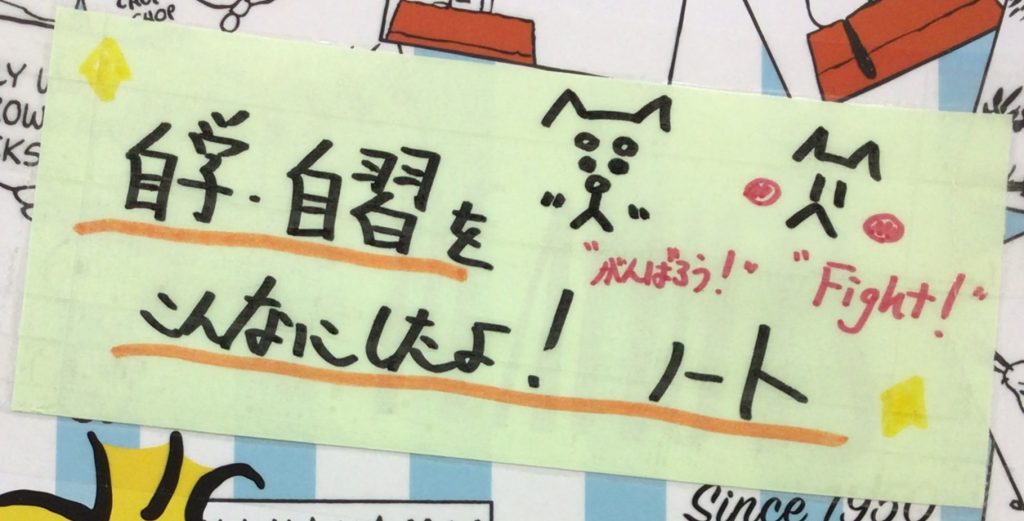 CHOP
自学・自習を
"がんばろう!"
"Fight!"
こんなにしたよ! ノート
Since 1950